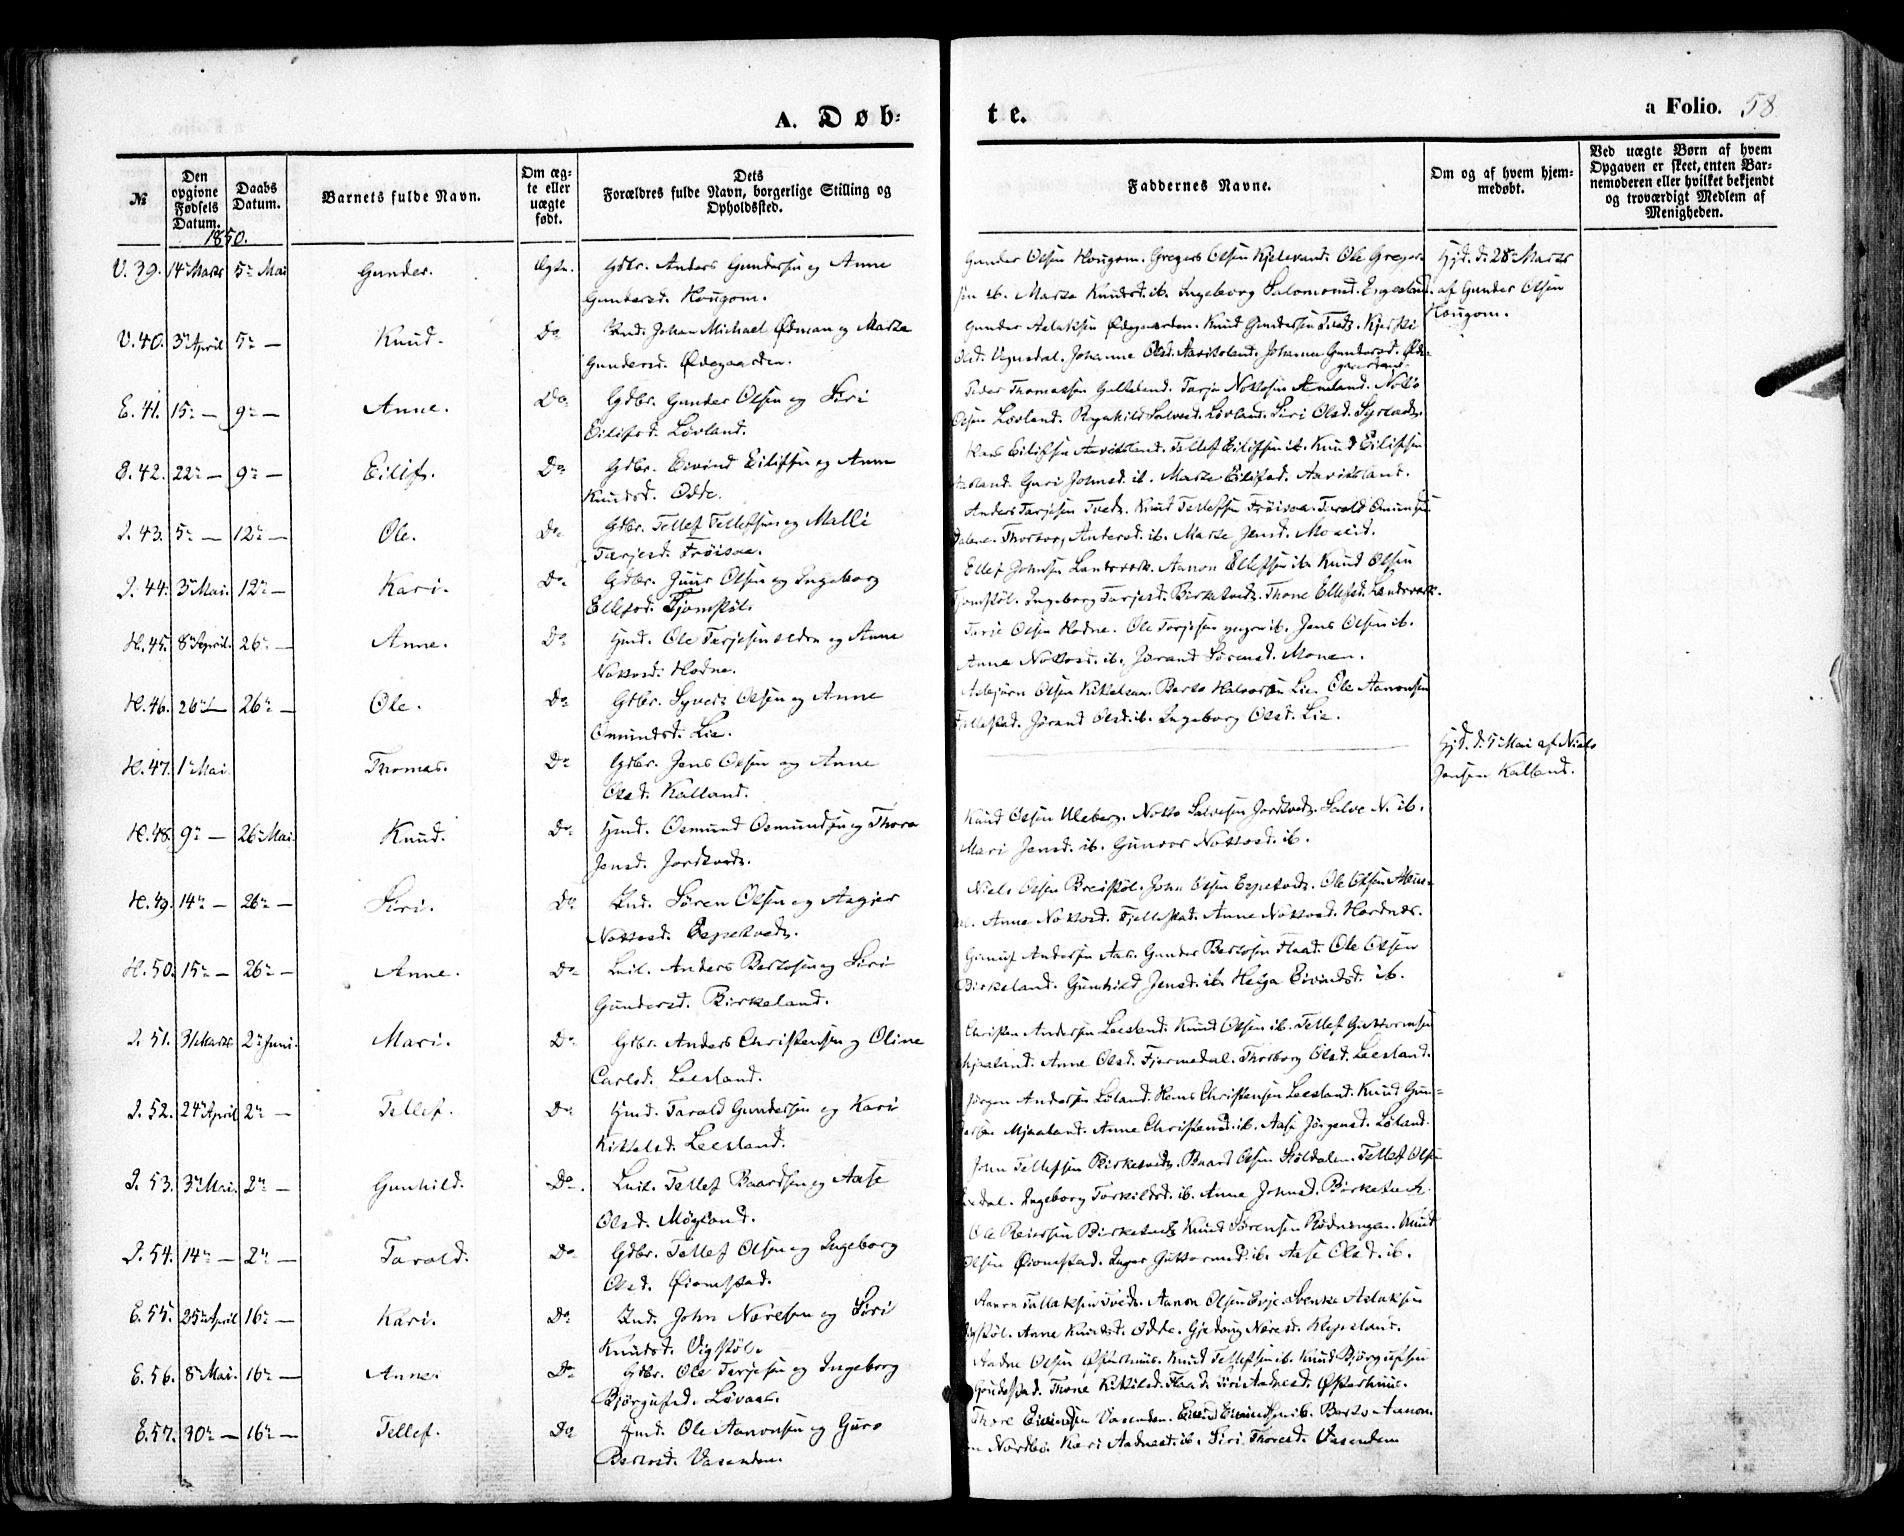 A. Døb-
te.
a Folio. 58
№
Den opgivne Fødsels Datum.
Daabs Datum.
Barnets fulde Navn.
Om ægte eller uægte født.
Dets Forældres fulde Navn, borgerlige Stilling og Opholdssted.
Faddernes Navne.
Om og af hvem hjemmedøbt.
Ved uægte Børn af hvem Opgaven er skeet, enten Barnemoderen eller hvilket bekjendt og troværdigt Medlem af Menigheden.
1850.
V. 39. 14 Marts 5 Mai Gunder. Ægte. Gdbr. Anders Gundersen og Anne
Gundersd. Hougom.
Gunder Olsen Hougom. Gregers Olsen Kjelevand. Ole Gregers-
sen ib. Marte Knudsd. ib. Ingeborg Salomonsd. Engesland.
Hjd. d. 28 Marts
af Gunder Olsen
Hougom.
V. 40. 3 April 5 — Knud. Do Ind. Johan Michael Ødman og Marte
Gundersd. Ødegaarden.
Gunder Aslaksen Ødegaarden. Knud Gundersen Tvedt. Kjersti
Olsd. Vignedal. Johanne Olsd. Aavitsland. Johanna Gundersd. Øde-
gaarden.
E. 41. 15 — 9 — Anne. Do Gdbr. Gunder Olsen og Siri
Eilifsd. Løvland.
Peder Thomassen Galteland. Tarje Nottosen Aamland. Notto
Olsen Løvland. Ragnhild Salvesd. Løvland. Siri Olsd. Syrtvedt.
E. 42. 22 — 9 — Eilif. Do Gdbr. Eivind Eilifsen og Anne
Knudsd. Odde.
Hans Eilifsen Aavitsland. Tellef Eilifsen ib. Knud Eilifsen
Guri Johnsd. ib. Marte Eilifsd. Aavitsland.
I. 43. 5 — 12 — Ole. Do Gdbr. Tellef Tellefsen og Malli
Tarjesd. Frøisaa.
Anders Tarjesen Tvedt. Knud Tellefsen Frøisaa. Tarald Omundsen
Dalane. Thorborg Andersd. ib. Marte Jensd.
I. 44. 3 Mai. 12 — Kari. Do Gdbr. Juur Olsen og Ingeborg
Ellefsd. Fjomstøl.
Ellef Johnsen Landsverk. Aanon Ellefsen ib. Knud Olsen
Fjomstøl. Ingeborg Tarjesd. Birketvedt. Thone Ellefsd. Landsverk.
H. 45. 8 April. 26 — Anne. Do Hmd. Ole Terjesen ældre og Anne
Nottosd. Hodne.
Terje Olsen Hodne. Ole Terjesen yngre ib. Jens Olsen ib.
Anne Nottosd. ib. Jørand Sørensd. Monen.
H. 46. 26 — 26 — Ole. Do Gdbr. Syvert Olsen og Anne
Omundsd. Lie.
Asbjørn Olsen Kittelsaa. Berto Halvorsen Lie. Ole Aanonsen
Fjellestad. Jørand Olsd. ib. Ingeborg Olsd. Lie.
H. 47. 1 Mai Thomas. Do Gdbr. Jens Olsen og Anne
Olsd. Kalland.
Hjd. d. 5 Mai af Niels
Jensen Kalland.
H. 48. 9 — 26 Mai. Knud. Do Hmd. Osmund Osmundsen og Thora
Jensd. Jordtvedt.
Knud Olsen Uleberg. Notto Salvesen Jordtvedt. Salve N. ib.
Mari Jensd. ib. Gunvor Nottosd. ib.
H. 49. 14 — 26 — Siri. Do Ind. Søren Olsen og Aagjer
Nottosd. Espetvedt.
Niels Olsen Breistøl. John Olsen Espetvedt. Ole Olsen
Anne Nottosd. Fjellestad. Anne Nottosd.
H. 50. 15 — 26 — Anne. Do Leil. Anders Bertosen og Siri
Gundersd. Birkeland.
Andersen Aas. Gunder Bertosen Flaad. Ole Olsen
Birkeland. Gunhild Jensd. ib. Helga Eivindsd. ib.
I. 51. 31 Marts 2 Juni. Mari. Do Gdbr. Anders Christensen og Oline
Carlsd. Leesland.
Christen Andersen Leesland. Knud Olsen ib. Tellef Guttormsen
Mjaaland. Anne Olsd. Fjermedal. Thorborg Olsd. Leesland.
I. 52. 24 April 2 — Tellef. Do Hmd. Tarald Gundersen og Kari
Kittelsd. Leesland.
Jørgen Andersen Løland. Hans Christensen Leesland. Knud Gun-
dersen Mjaaland. Anne Christensd. ib. Aase Jørgensd. Løland.
I. 53. 3 Mai. 2 — Gunhild. Do. Leil. Tellef Baardsen og Aase
Olsd. Møgland.
John Tellefsen Birketvedt. Baard Olsen Støldalen. Tellef Olsen
Ingeborg Torkildsd. ib. Anne Johnsd. Birketvedt.
I. 54. 14 — 2 — Tarald. Do Gdbr. Tellef Olsen og Ingeborg
Olsd. Øiomstad.
Ole Reiersen Birketvedt. Knud Sørensen Rødningen. Knud
Olsen Øiomstad. Inger Guttormsd. ib. Aase Olsd. ib.
E. 55. 25 April 16 — Kari. Do Ind. John Næresen og Siri
Knudsd. Vigstøl.
Aanon Tallaksen Tvedt. Aanon Olsen Evje. Svenke Aslaksen
Vigstøl. Anne Knudsd. Odde. Gjedong Næresd. Klepeland.
E. 56. 8 Mai. 16 — Anne. Do Gdbr. Ole Terjesen og Ingeborg
Bjørgufsd. Løvaas.
Aadne Olsen Østerhuus. Knud Tellefsen ib. Knud Bjørgufsen
Thone Kittilsd. Flaad. Siri Aadnesd. Østerhuus.
E. 57. 30 — 16 — Tellef. Do Hmd. Ole Aanonsen og Guro
Bertosd. Vasenden.
Thore Eivindsen Vasenden. Eivind Eivindsen ib. Berto Aanon-
sen Nordbø. Kari Aadnesd. ib. Siri Thoresd. Vasenden